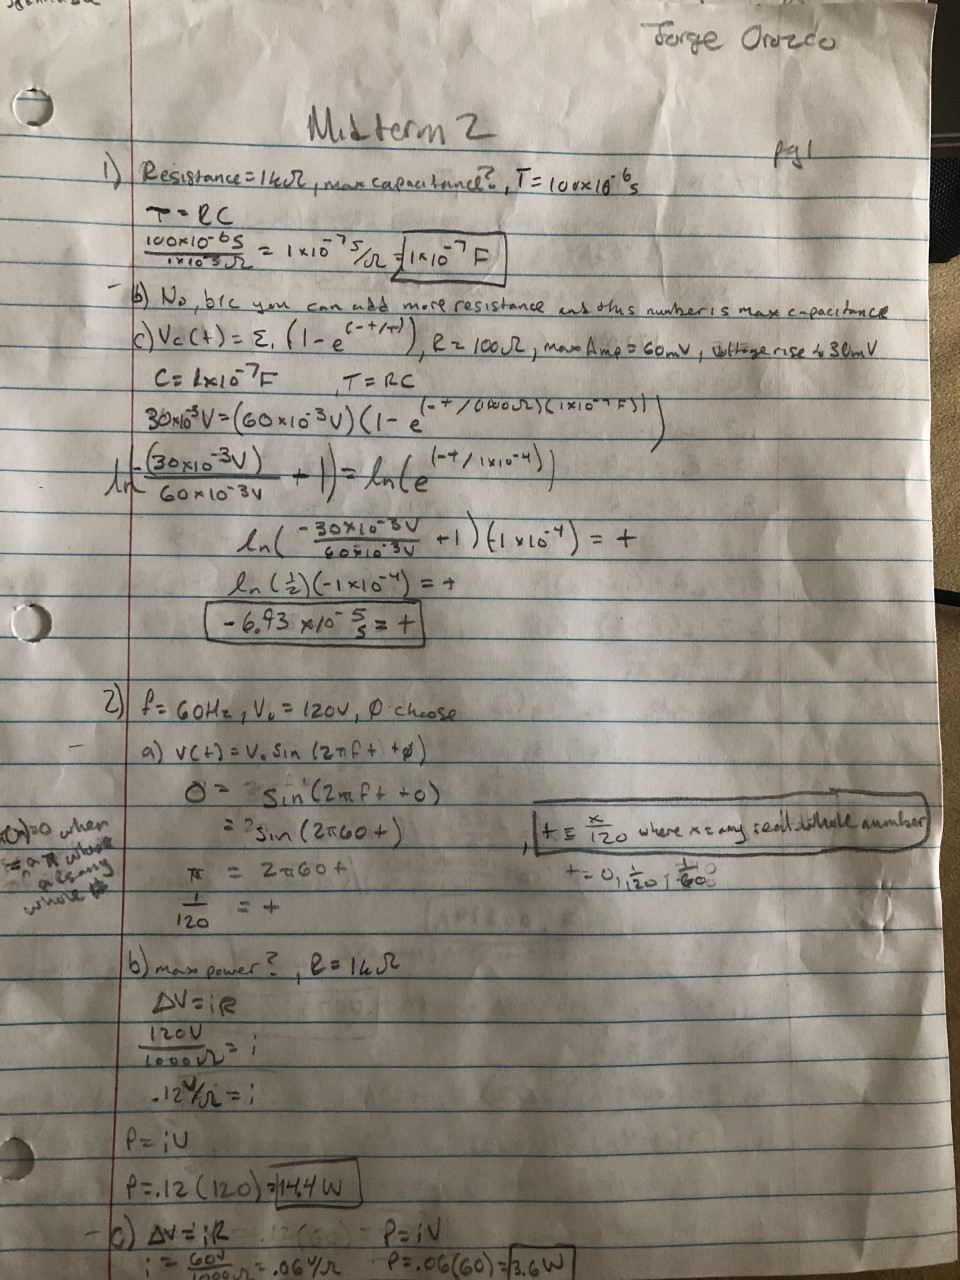 Jorge Orozco
Midterm 2
pg 1
1) Resistance = 1kΩ, max capacitance?, T = 100x10^-6 s
T = RC
100x10^-6 S / 1x10^3 Ω = 1x10^-7 s/Ω = 1x10^-7 F
b) No, b/c you can add more resistance and this number is max capacitance
c) Vc(t) = Σ, (1-e^(-t/T)), R = 100Ω, max Amp = 60mV, voltage rise to 30mV
C = 1x10^-7 F , T = RC
30x10^-3 V = (60x10^-3 V)(1-e^(-t/(1000Ω)(1x10^-7 F)))
ln(-(30x10^-3 V) / 60x10^-3 V + 1) = ln(e^(-t/1x10^-4))
ln(-30x10^-3 V / 60x10^-3 V + 1)(-1x10^-4) = t
ln(1/2)(-1x10^-4) = t
-6.93 x10^-5 s = t
2) f = 60Hz, V₀ = 120V, Ø choose
a) V(t) = V₀ sin (2πft + ø)
0 = sin(2πft + 0)
= sin(2π60t)
=0 when
a π where
a is any
whole #
π = 2π60t
1/120 = t
, t = x/120 where x = any real whole number
t = 0, 1/120, 1/60
b) max power? , R = 1kΩ
ΔV = iR
120V / 1000Ω = i
.12 V/Ω = i
P = iV
P = .12(120) = 14.4 W
c) ΔV = iR P = iV
i = 60V / 1000Ω = .06 V/Ω P = .06(60) = 3.6 W